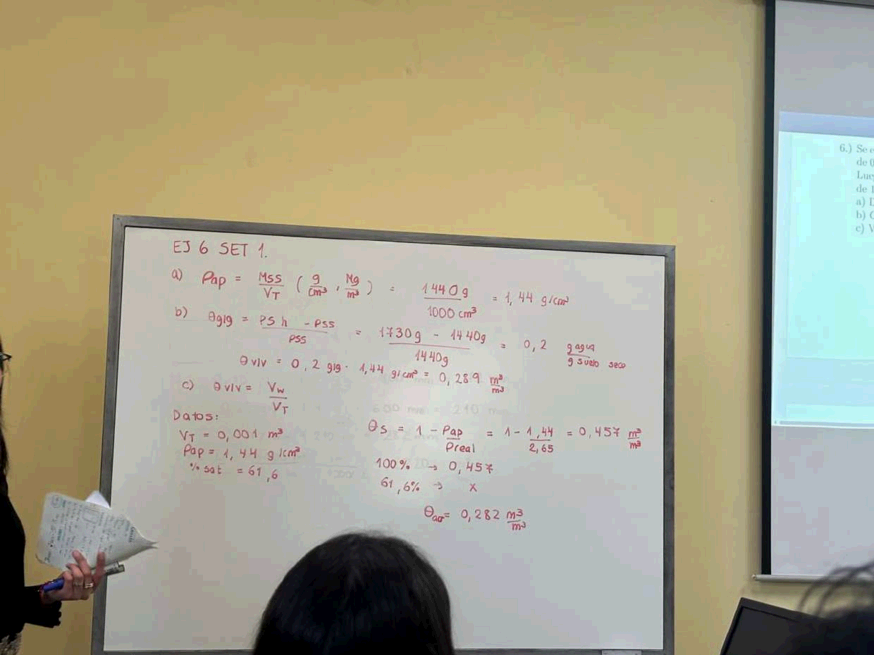 EJ 6 SET 1.
a) ρap = Mss/VT (g/cm³, Mg/m³) = 1440g/1000 cm³ = 1,44 g/cm³
b) θg/g = PSh - PSS/PSS = 1730g - 1440g/1440g = 0,2 g agua/g suelo seco
θ v/v = 0,2 g/g · 1,44 g/cm³ = 0,289 m³/m³
c) θ v/v = Vw/VT
Datos:
VT = 0,001 m³
ρap = 1,44 g/cm³
% sat = 61,6
θs = 1 - ρap/ρreal = 1 - 1,44/2,65 = 0,457 m³/m³
100% → 0,457
61,6% → x
= 0,282 m³/m³
6.) Se
de
de 1
a)
b)
c)